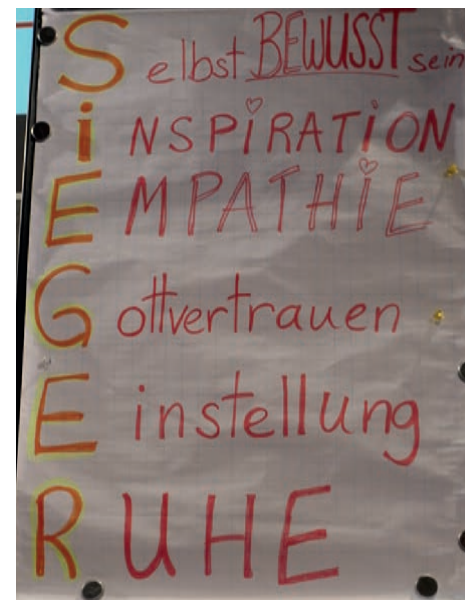 Selbst BEWUSST sein
iNSPiRATiON
EMPATHiE
Gottvertrauen
Einstellung
RUHE